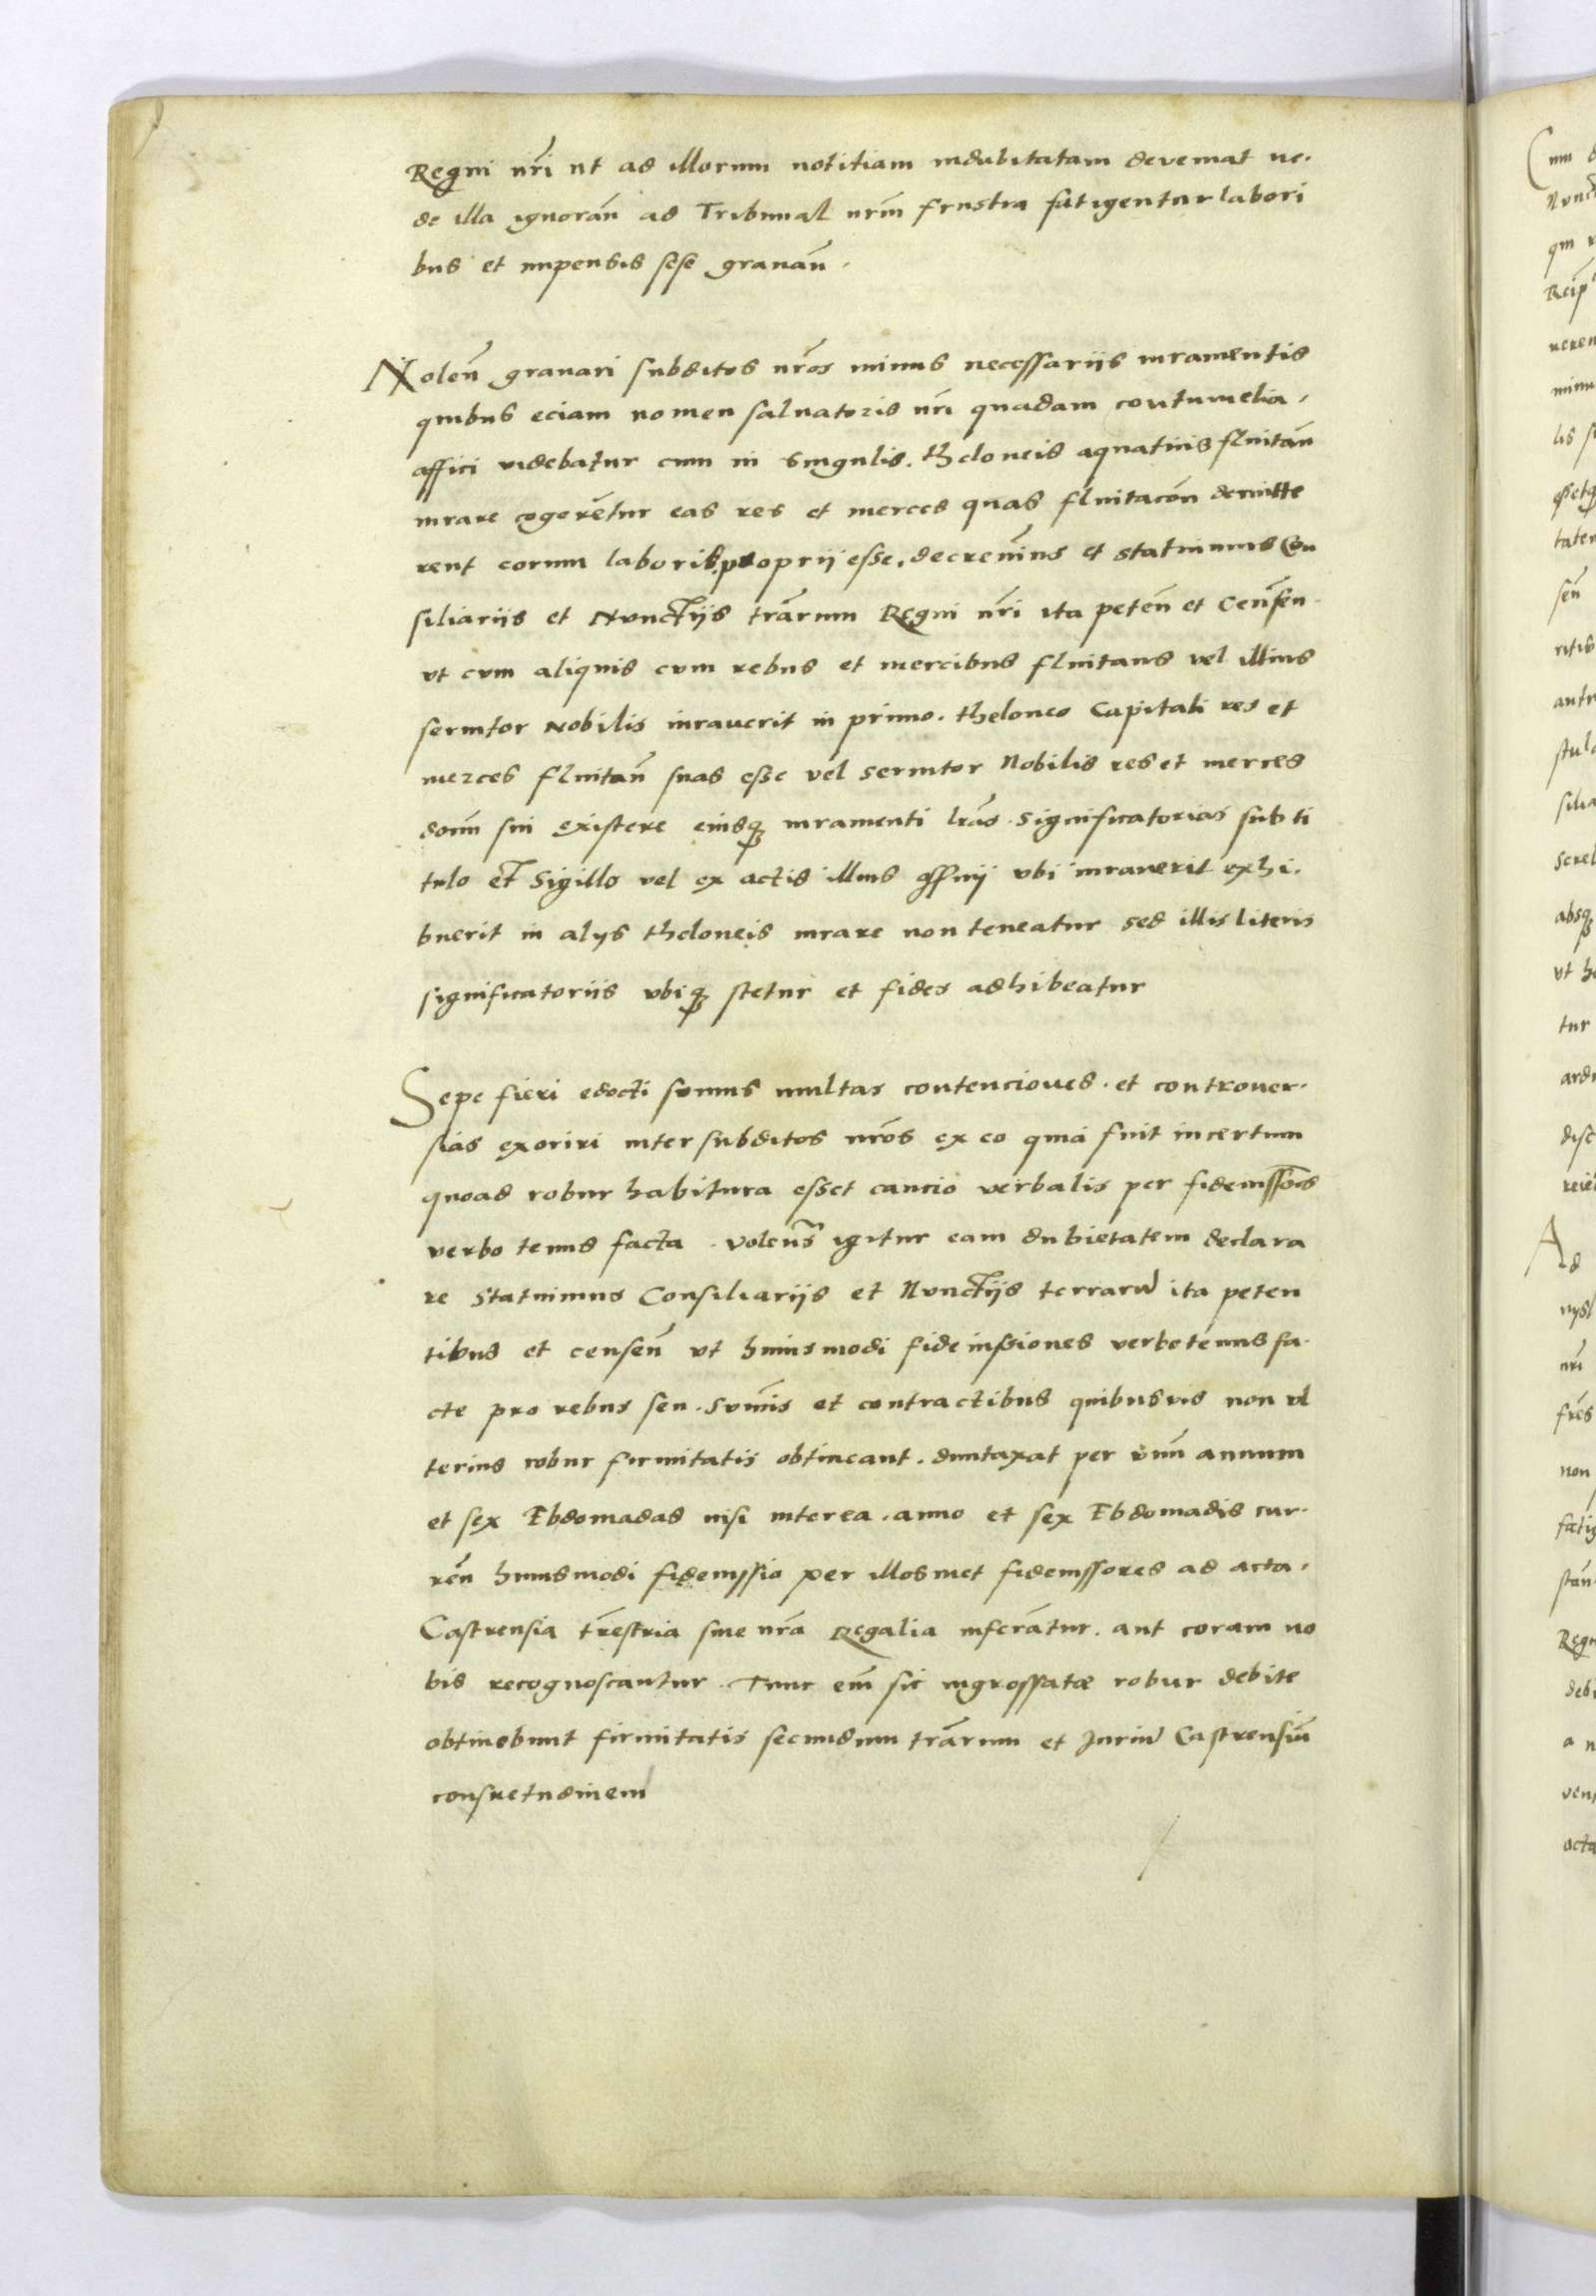 Regni nr̃i ut ad illorum notitiam indubitatam deveniat ne.
de illa ignorañ ad Tribunal nrm̃ frustra fatigentur labori
bus et impensis sese gravañ.
Noleñ gravari subditos nr̃os minus necessariis iuramentis
quibus eciam nomen salvatoris nr̃i quadam contumelia,
affici videbatur cum in singulis. theloneis aquaticis fluitañ
iurare cogerẽtur eas res et merces quas fluitacõñ demitte
rent eorum laboris. proprii esse, decrevim̃us et statuimus Con
siliariis et Nunctiis tr̃arum Regni nr̃i ita peteñ et Censeñ.
ut cum aliquis cum rebus et mercibus fluitans vel illius
servitor Nobilis iuraverit in primo. theloneo Capitali res et
merces fluitañ suas esse vel servitor Nobilis res et merces
domĩ sui existere eiusq iuramenti lr̃as. significatorias sub ti
tulo et Sigillo vel ex actis illius officij ubi iuraverit exhi.
buerit in alijs theloneis iurare non teneatur sed illis literis
significatoriis ubiq stetur et fides adhibeatur
Sepe fieri edocti sumus multas contenciones. et controver.
sias exoriri inter subditos nr̃os ex eo quia fuit incertum
quoad robur habitura esset caucio verbalis per fideiussor̃es
verbo tenus facta. volenš igitur eam dubietatem declara
re Statuimus Consiliariis et Nunctiis terrarum ita peten
tibus et censeñ ut huiusmodi fideiussiones verbotenus fa.
cte pro rebus seu. sum̃is et contractibus quibusvis non ul
terius robur firmitatis obtineant. duntaxat per unũ annum
et sex Ebdomadas nisi interea. anno et sex Ebdomadis cur.
reñ huiusmodi fideiussio per illosmet fideiussores ad acta.
Castrensia tr̃estria sive nr̃a Regalia inferãtur. aut coram no
bis recognoscantur. Tunc em̃ sic ingrossatæ robur debite
obtinebunt firmitatis secundum tr̃arum et Jurium Castrensiũ
consuetudinem